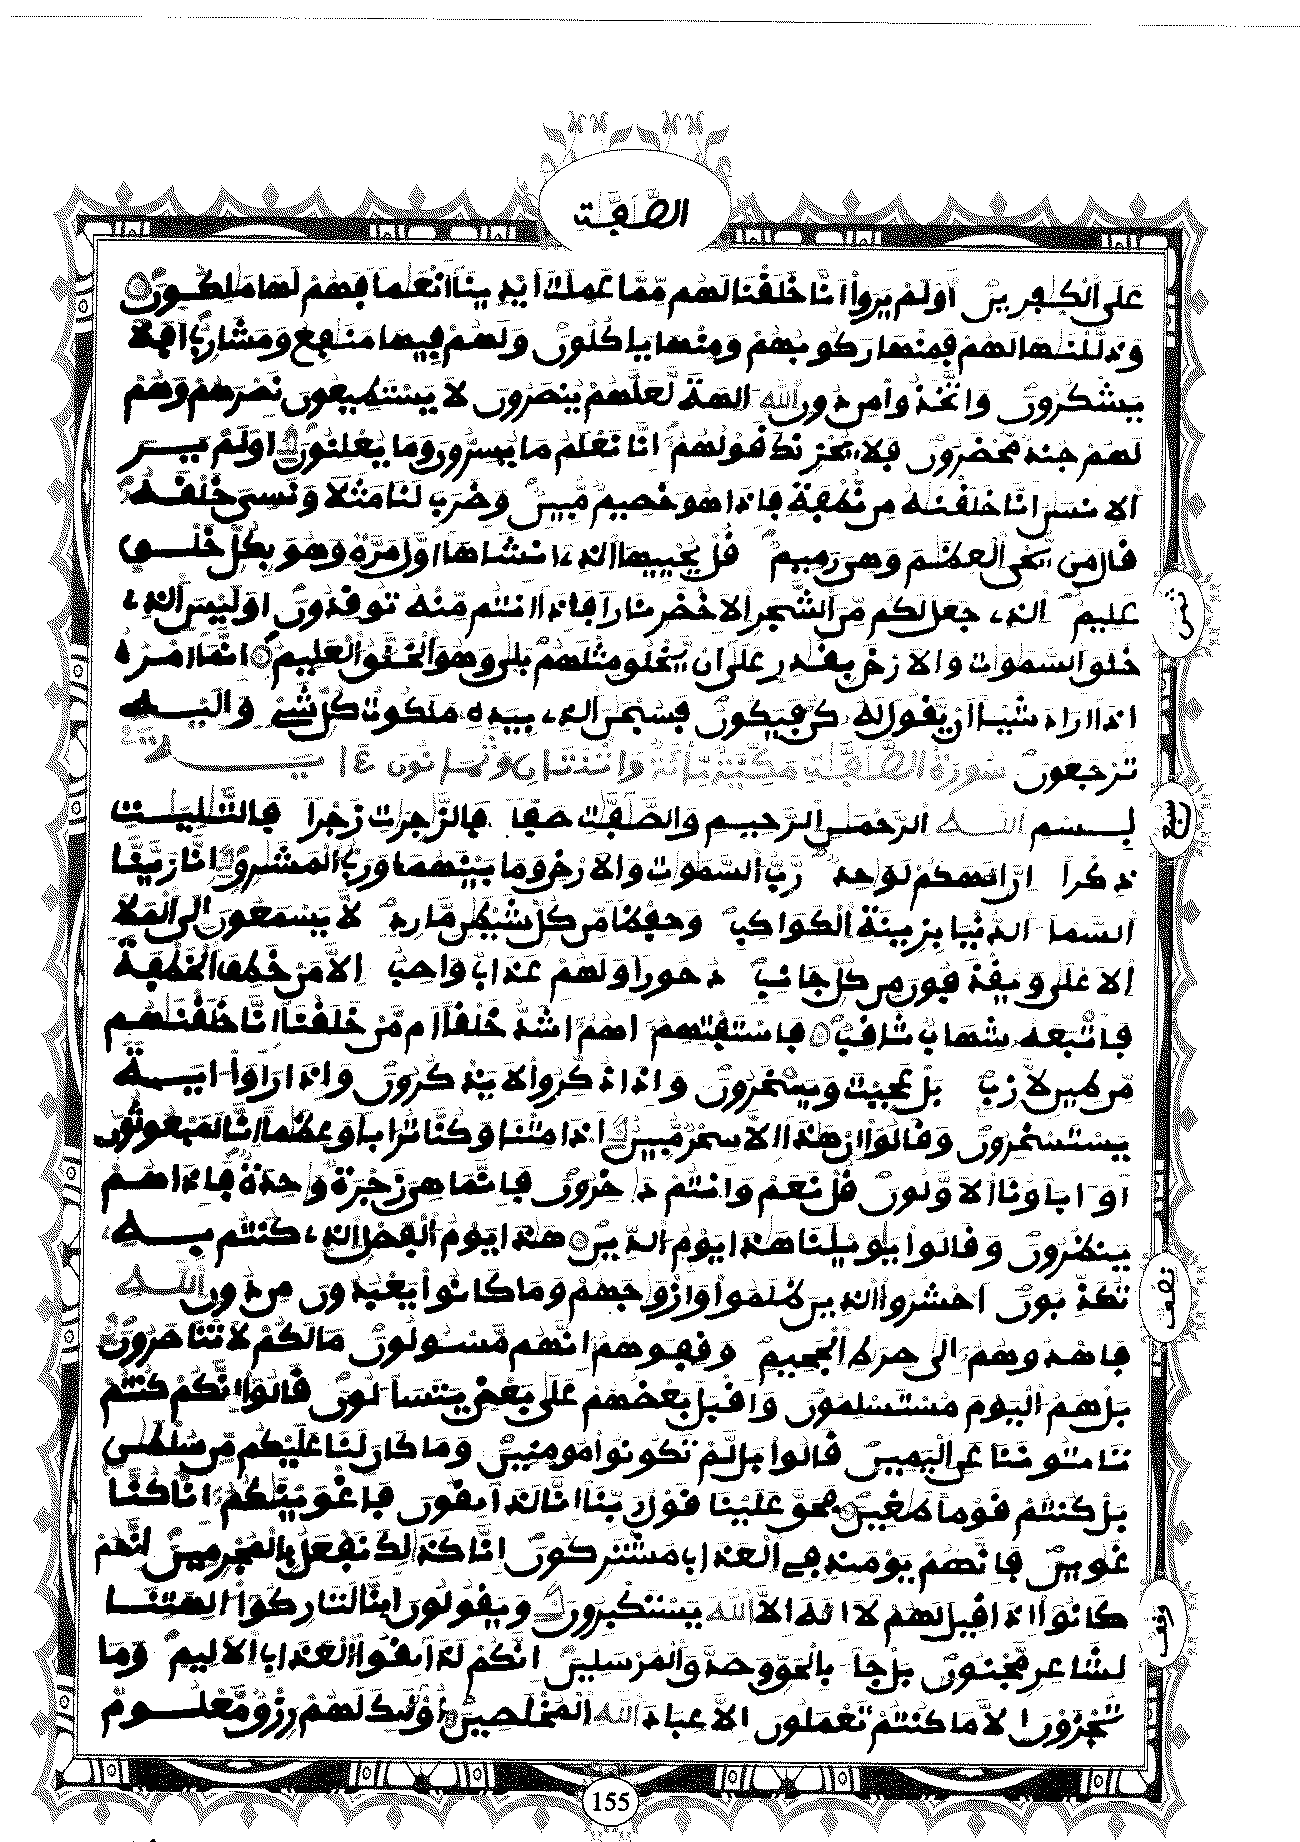 الصَّٰفَّٰت
على الكٰفرين أولم يروا انا خلقنا لهم مما عملت ايدينا أنعٰما فهم لها مٰلكون
وذللنٰها لهم فمنها ركوبهم ومنها ياكلون ولهم فيها منٰفع ومشارب افلا
يشكرون واتخذوا من دون الله ءالهة لعلهم ينصرون لا يستطيعون نصرهم وهم
لهم جند محضرون فلا يحزنك قولهم انا نعلم ما يسرون وما يعلنون اولم ير
الانسٰن انا خلقنٰه من نطفة فاذا هو خصيم مبين وضرب لنا مثلا ونسي خلقه
قال من يحي العظٰم وهي رميم قل يحييها الذي أنشأها أول مرة وهو بكل خلق
عليم الذي جعل لكم من الشجر الاخضر نارا فاذا أنتم منه توقدون اوليس الذي
خلق السمٰوٰت والارض بقٰدر على أن يخلق مثلهم بلى وهو الخلٰق العليم انما أمره
اذا أراد شيئا ان يقول له كن فيكون فسبحٰن الذي بيده ملكوت كل شيء واليه
ترجعون سورة الصٰفٰت مكية مائة واثنتان وثمانون ءاية
بسم الله الرحمٰن الرحيم والصٰفٰت صفا فالزٰجرٰت زجرا فالتٰليٰت
ذكرا ان الٰهكم لوٰحد رب السمٰوٰت والارض وما بينهما ورب المشٰرق انا زينا
السماء الدنيا بزينة الكواكب وحفظا من كل شيطٰن مارد لا يسمعون إلى الملا
الاعلى ويقذفون من كل جانب دحورا ولهم عذاب واصب الا من خطف الخطفة
فأتبعه شهاب ثاقب فاستفتهم أهم أشد خلقا ام من خلقنا انا خلقنٰهم
من طين لازب بل عجبت ويسخرون واذا ذكروا لا يذكرون واذا رأوا ءاية
يستسخرون وقالوا ان هٰذا الا سحر مبين أءذا متنا وكنا ترابا وعظٰما انا لمبعوثون
أو ءاباؤنا الاولون قل نعم وأنتم دٰخرون فانما هي زجرة وٰحدة فإذا هم
ينظرون وقالوا يٰويلنا هٰذا يوم الدين هٰذا يوم الفصل الذي كنتم به
تكذبون احشروا الذين ظلموا وأزوٰجهم وما كانوا يعبدون من دون الله
فاهدوهم إلى صرٰط الجحيم وقفوهم انهم مسـولون مالكم لا تناصرون
بل هم اليوم مستسلمون وأقبل بعضهم على بعض يتساءلون قالوا انكم كنتم
تاتوننا عن اليمين قالوا بل لم تكونوا مومنين وما كان لنا عليكم من سلطٰن
بل كنتم قوما طٰغين فحق علينا قول ربنا انا لذائقون فأغوينٰكم انا كنا
غٰوين فإنهم يومئذ في العذاب مشتركون انا كذٰلك نفعل بالمجرمين انهم
كانوا اذا قيل لهم لا إلٰه الا الله يستكبرون ويقولون أئنا لتاركوا ءالهتنا
لشاعر مجنون بل جاء بالحق وصدق المرسلين انكم لذائقوا العذاب الاليم وما
تجزون الا ما كنتم تعملون الا عباد الله المخلصين أولٰئك لهم رزق معلوم
ثمن
نصف
155